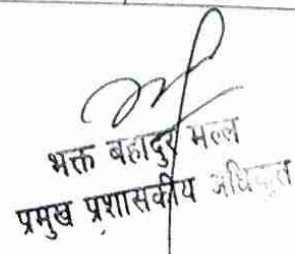 भक्त बहादुर मल्ल
प्रमुख प्रशासकीय अधिकृत